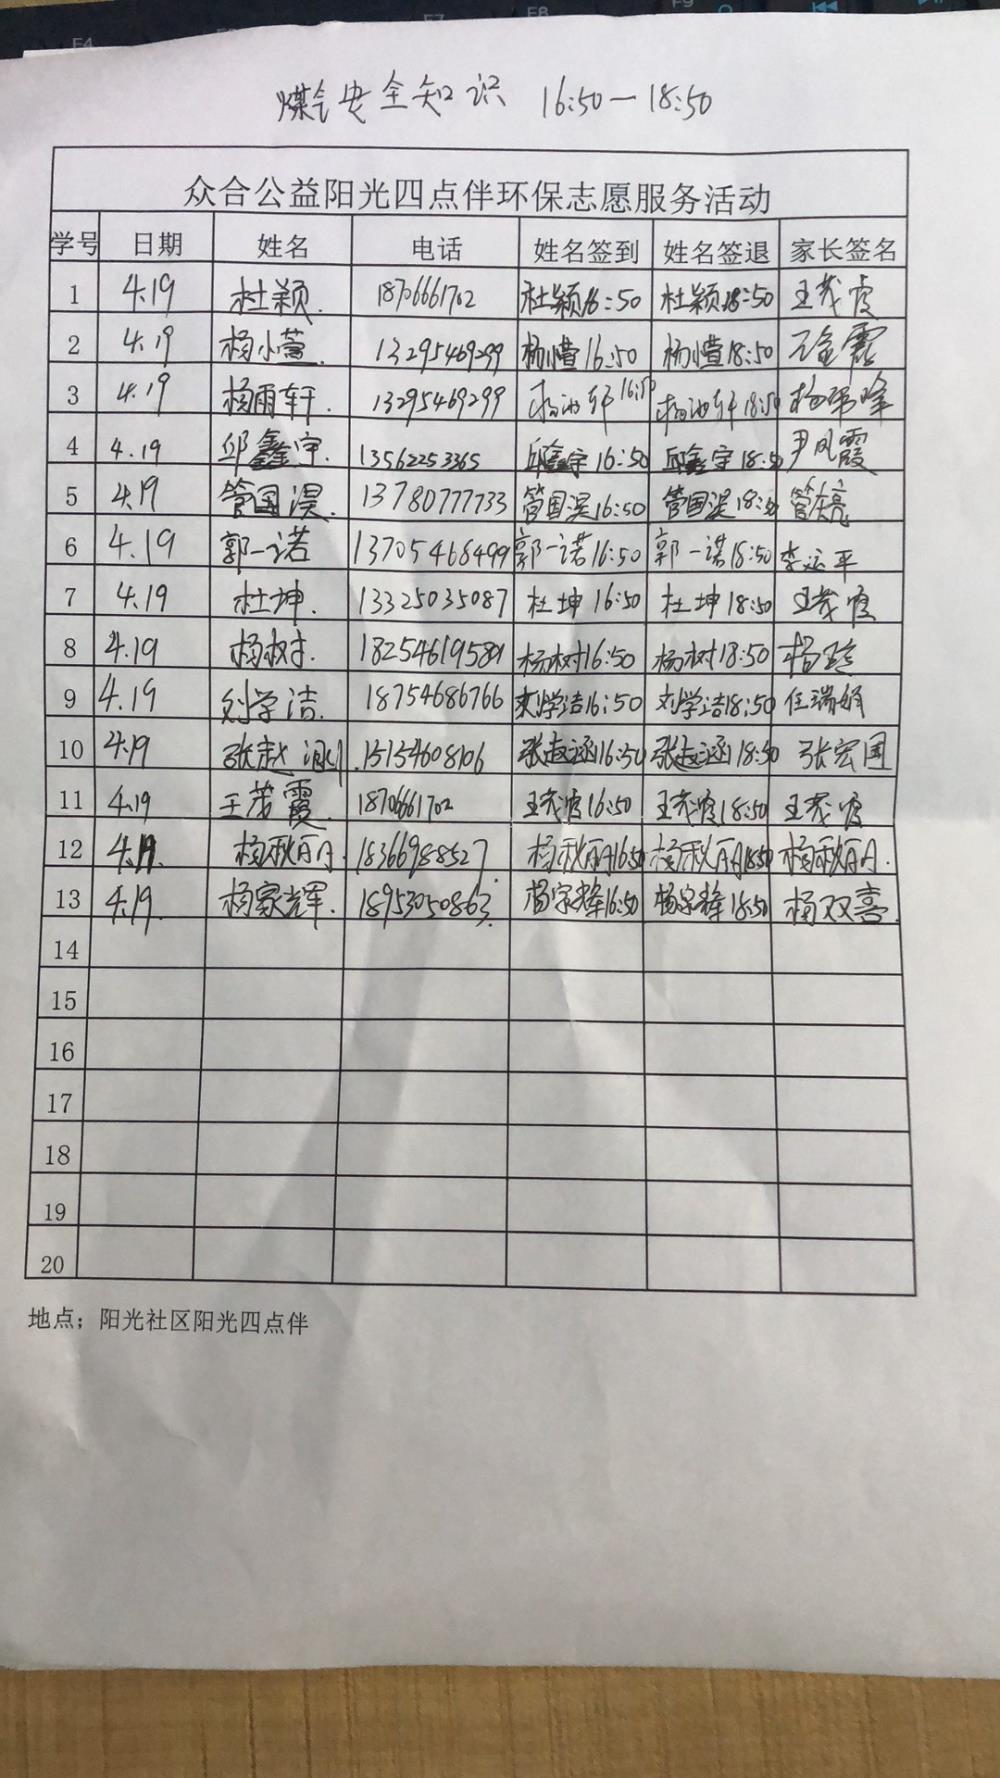 煤气安全知识 16:50—18:50
众合公益阳光四点伴环保志愿服务活动
学号 日期 姓名 电话 姓名签到 姓名签退 家长签名
1 4.19 杜颖. 18706661702 杜颖16:50 杜颖18:50 王茂霞
2 4.19 杨小萱. 13295469299 杨小萱16:50 杨小萱18:50
3 4.19 杨雨轩. 13295469299 16:50 18:50
4 4.19 邱鑫宇. 13562253365 邱鑫宇16:50 邱鑫宇18:50 尹凤霞
5 4.19 管国淏. 13780777733 管国淏16:50 管国淏18:50
6 4.19 郭一诺 13705468499 郭一诺16:50 郭一诺18:50 李运平
7 4.19 杜坤. 13325035087 杜坤16:50 杜坤18:50 王茂霞
8 4.19 杨树. 18254619589 杨树16:50 杨树18:50
9 4.19 刘学洁. 18754686766 刘学洁16:50 刘学洁18:50 任瑞娟
10 4.19 张赵涵. 15154608106 张赵涵16:50 张赵涵18:50 张宏国
11 4.19 王茂霞. 18706661702 王茂霞16:50 王茂霞18:50 王茂霞
12 4.19. 杨秋丽. 18366988527. 杨秋丽16:50 杨秋丽18:50 杨秋丽.
13 4.19. 杨家辉. 18953050863. 杨家辉16:50 杨家辉18:50 杨双喜.
14
15
16
17
18
19
20
地点；阳光社区阳光四点伴